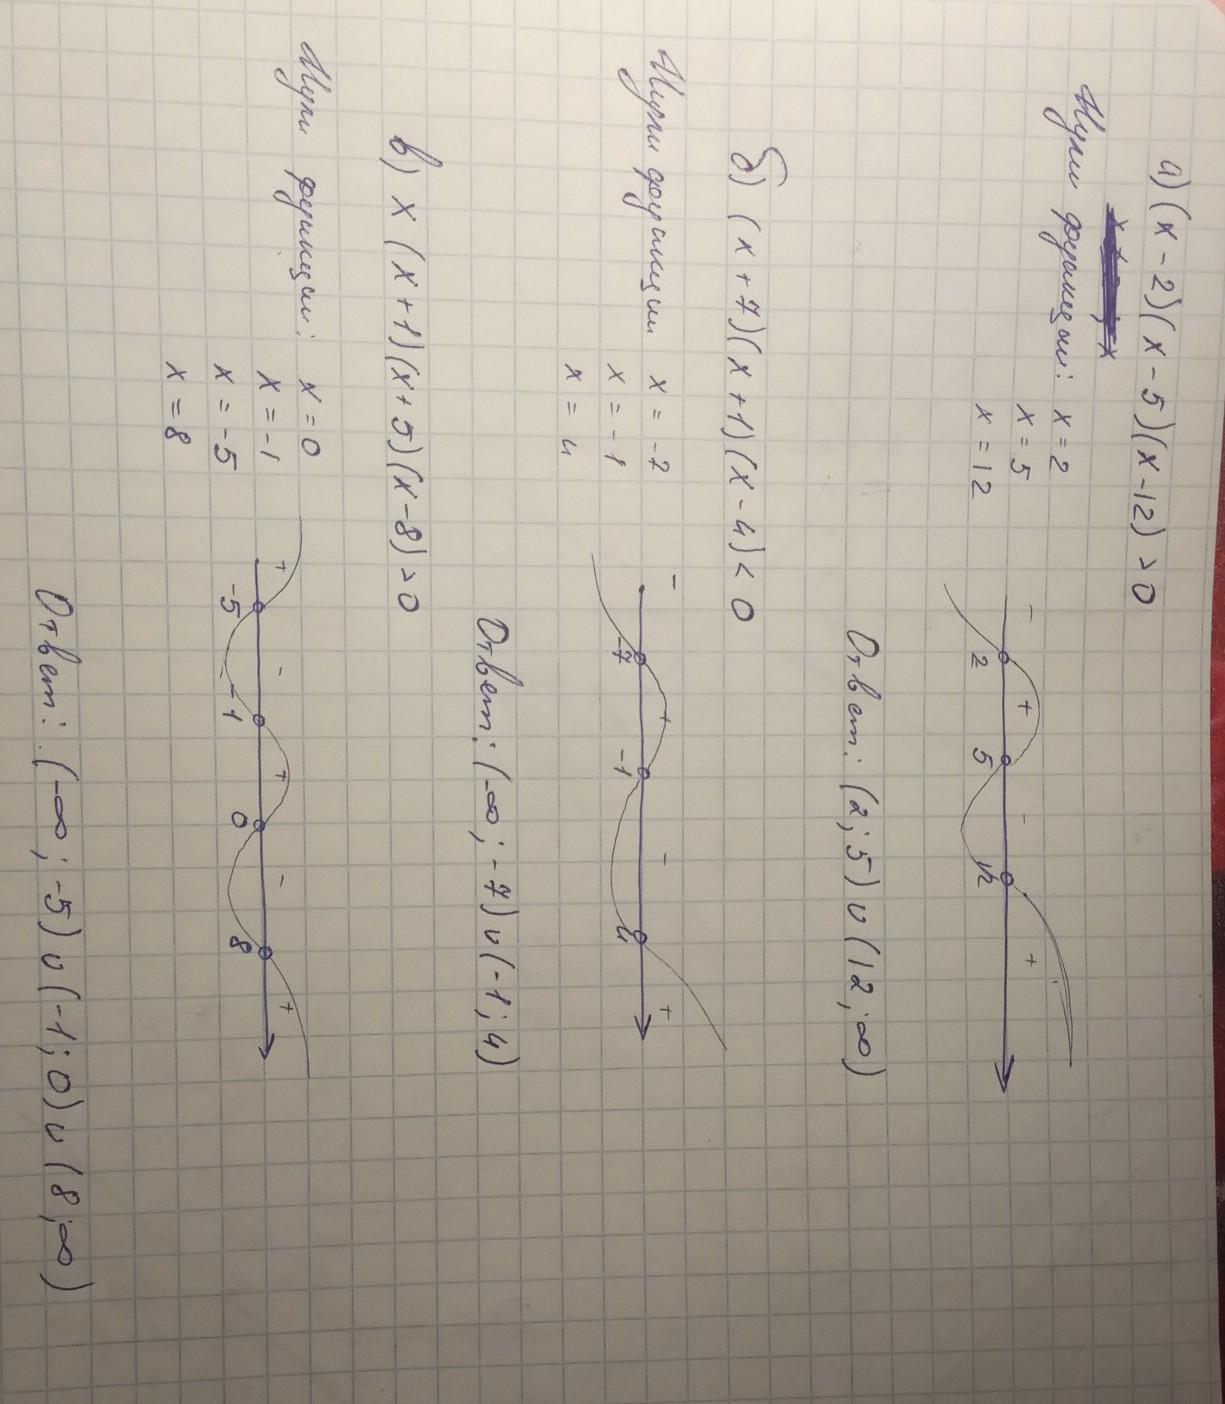 а) (x - 2)(x - 5)(x - 12) > 0
Нули функции: x = 2
x = 5
x = 12
- + - +
2 5 12
Ответ: (2; 5) ∪ (12; ∞)
б) (x + 7)(x + 1)(x - 4) < 0
Нули функции x = -7
x = -1
x = 4
- + - +
-7 -1 4
Ответ: (-∞; -7) ∪ (-1; 4)
в) x (x + 1)(x + 5)(x - 8) > 0
Нули функции: x = 0
x = -1
x = -5
x = 8
+ - + - +
-5 -1 0 8
Ответ: (-∞; -5) ∪ (-1; 0) ∪ (8; ∞)